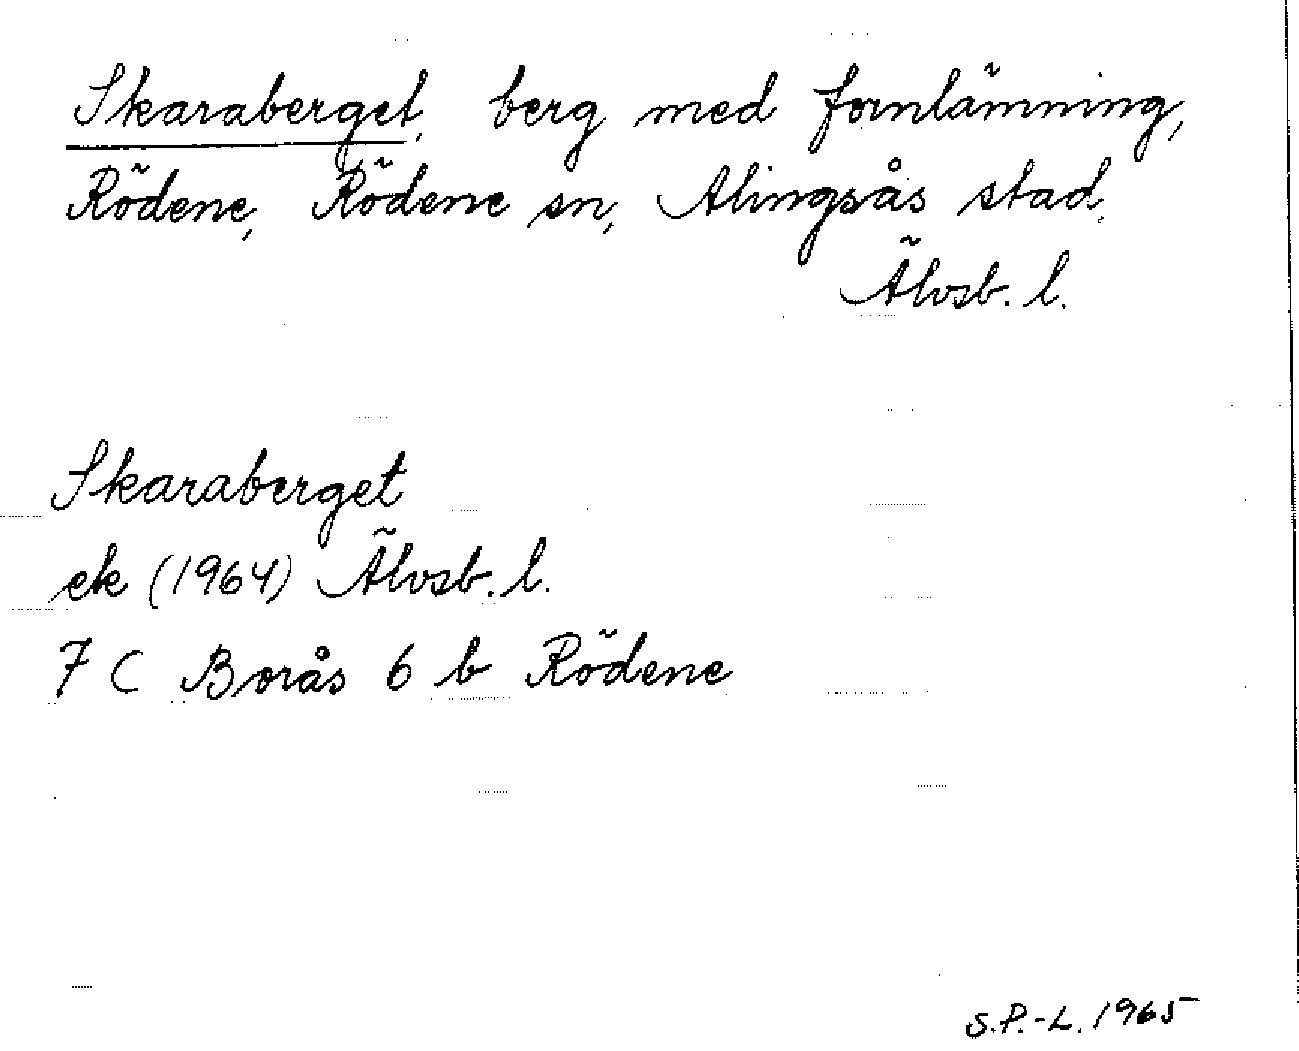 Skaraberget, berg med fornlämning,
Rödene, Rödene sn, Alingsås stad,
Älvsb. l.
Skaraberget
ek (1964) Älvsb. l.
7 C Borås 6 b Rödene
S.P.-L. 1965